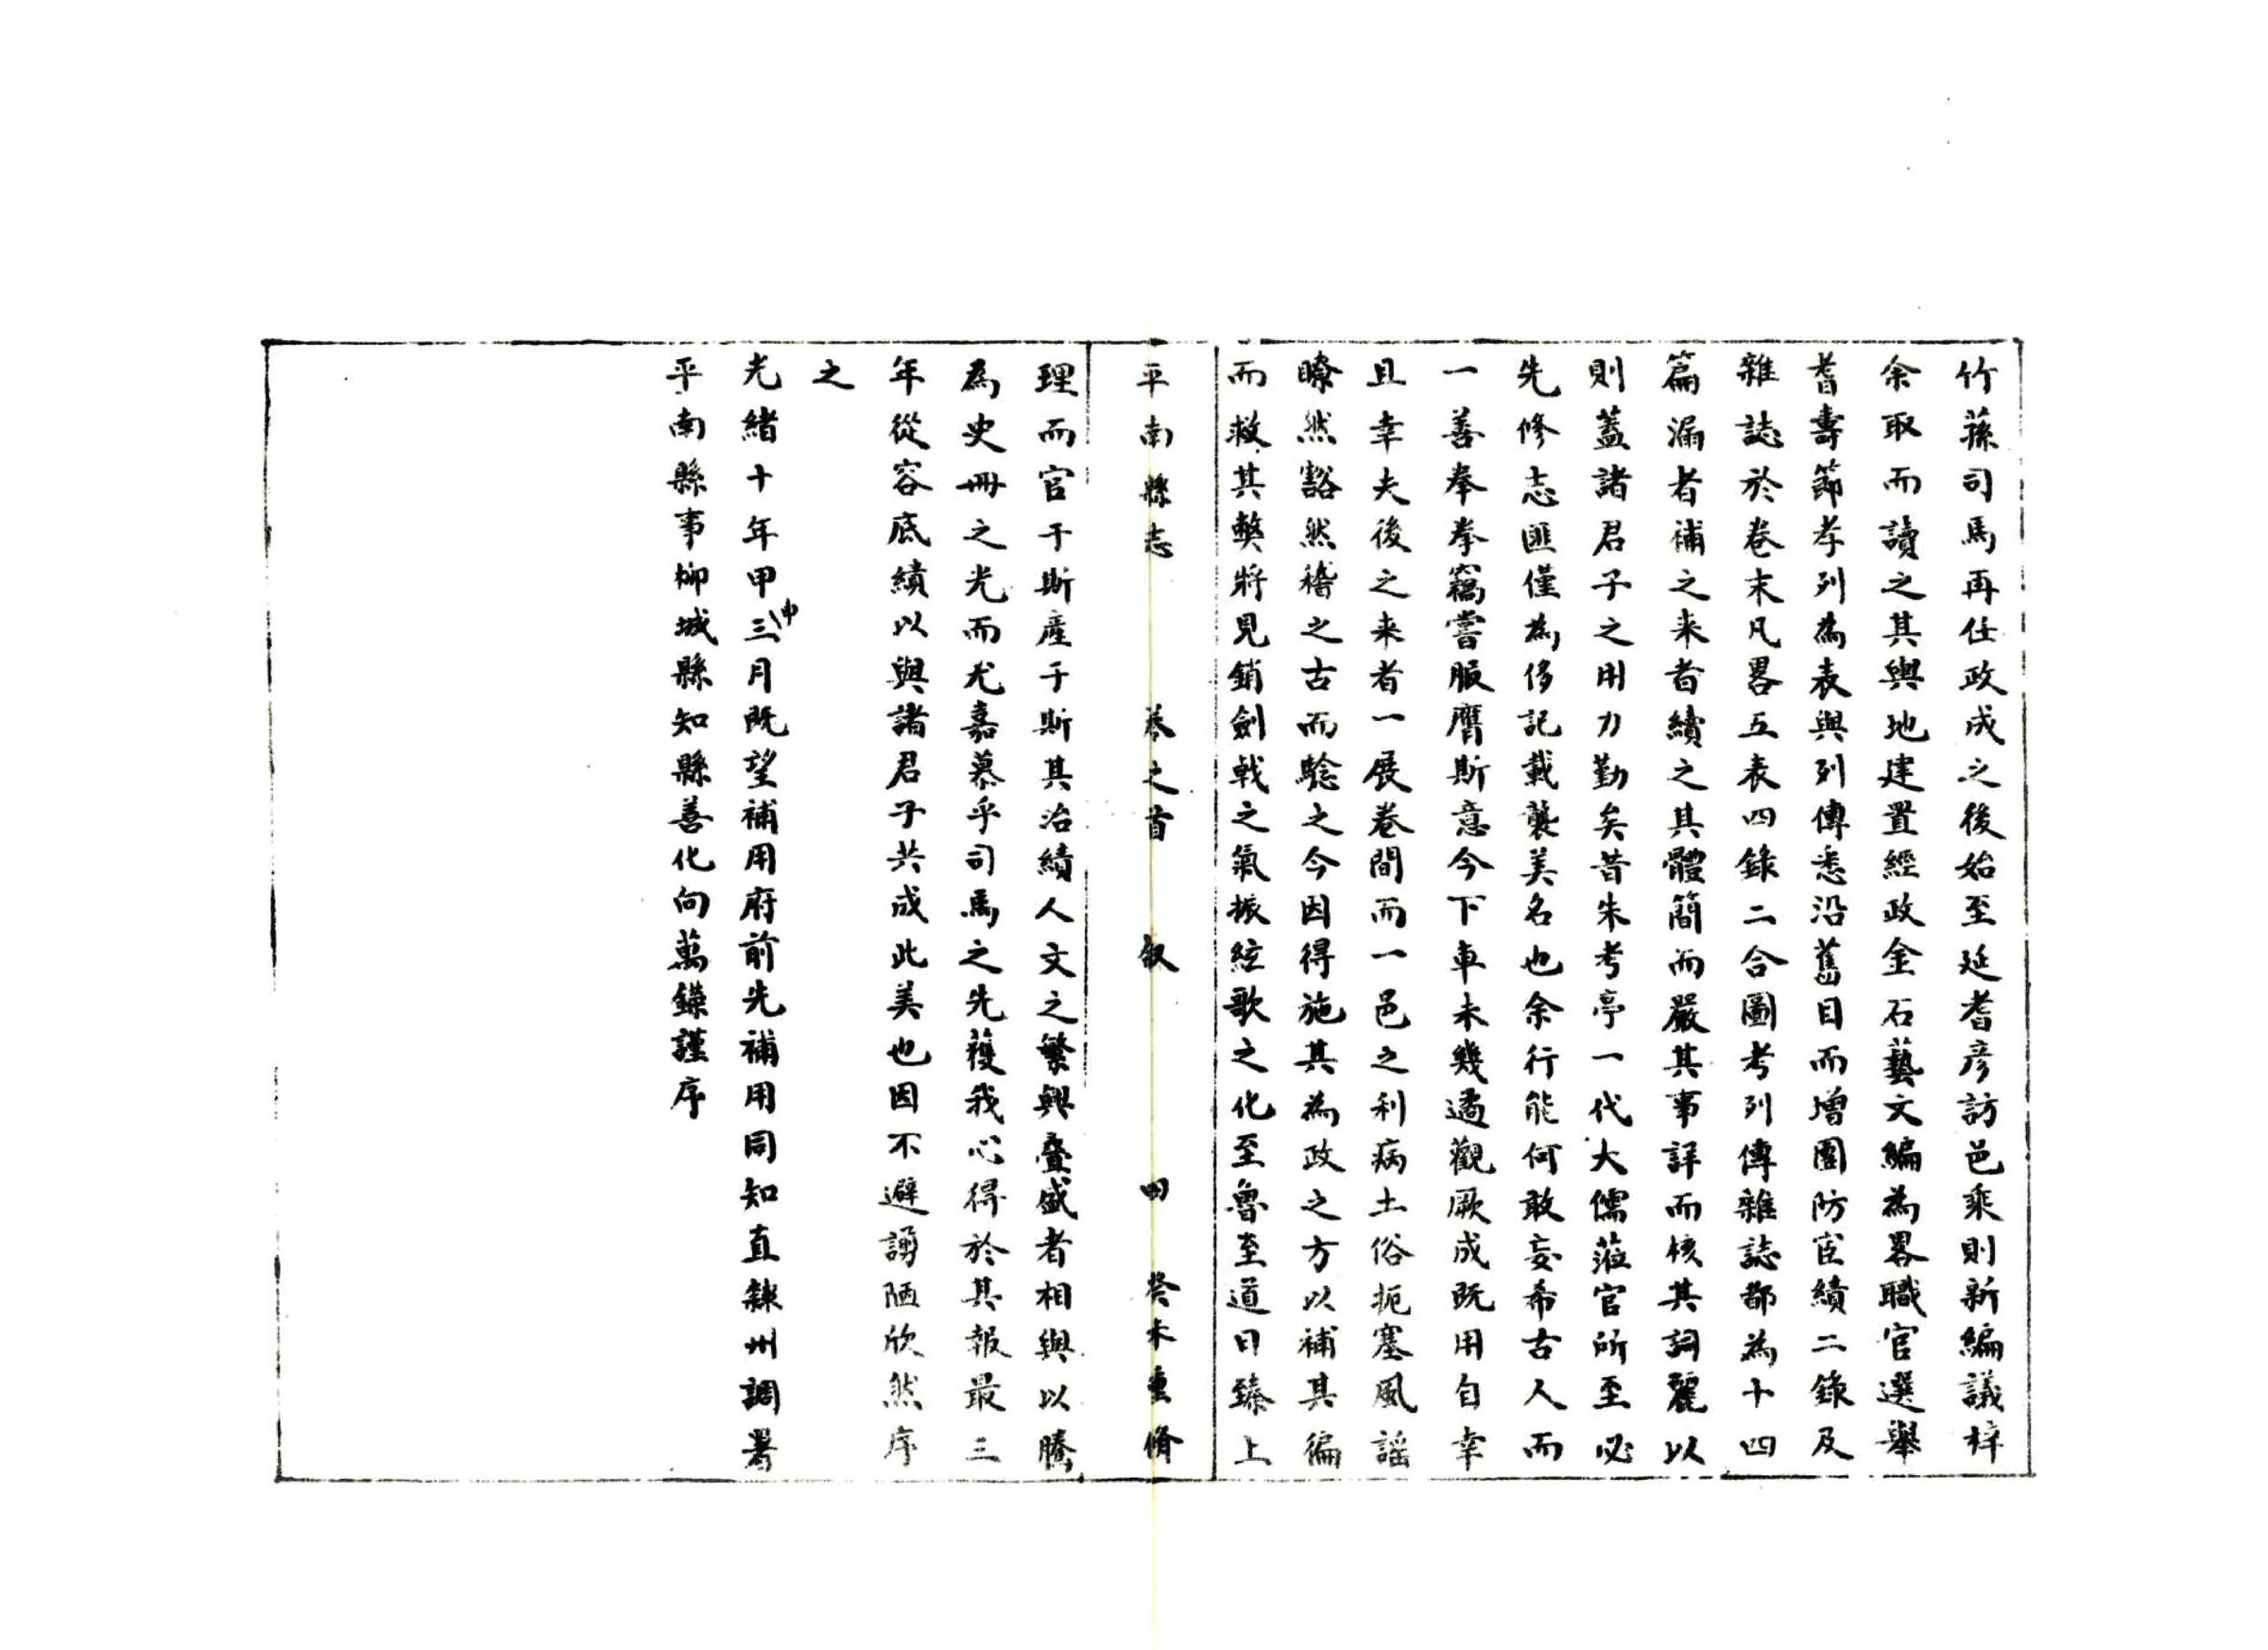 竹蓀司馬再任政成之後始至延耆彦訪邑乘則新編議梓
余取而讀之其輿地建置經政金石藝文編為畧職官選舉
耆壽節孝列為表與列傳悉沿舊目而增團防宦績二錄及
雜誌於卷末凡畧五表四錄二合圖考列傳雜誌都為十四
篇漏者補之来者續之其體簡而嚴其事詳而核其詞麗以
則蓋諸君子之用力勤矣昔朱考亭一代大儒蒞官所至必
先修志匪僅為侈記載襲美名也余行能何敢妄希古人而
一善奉拳竊嘗服膺斯意今下車未幾遹觀厥成既用自幸
且幸夫後之来者一展卷間而一邑之利病土俗扼塞風謡
瞭然豁然稽之古而騐之今因得施其為政之方以補其徧
而救其獘將見銷劍戟之氣振絃歌之化至魯至道日臻上
平南縣志 卷之首 叙 四 癸未重脩
理而官于斯產于斯其治績人文之繁興疊盛者相與以騰
為史冊之光而尤嘉慕乎司馬之先獲我心得於其報最三
年從容底績以與諸君子共成此美也因不避謭陋欣然序
之
光緒十年甲申三月既望補用府前先補用同知直隸州調署
平南縣事柳城縣知縣善化向萬鑅謹序